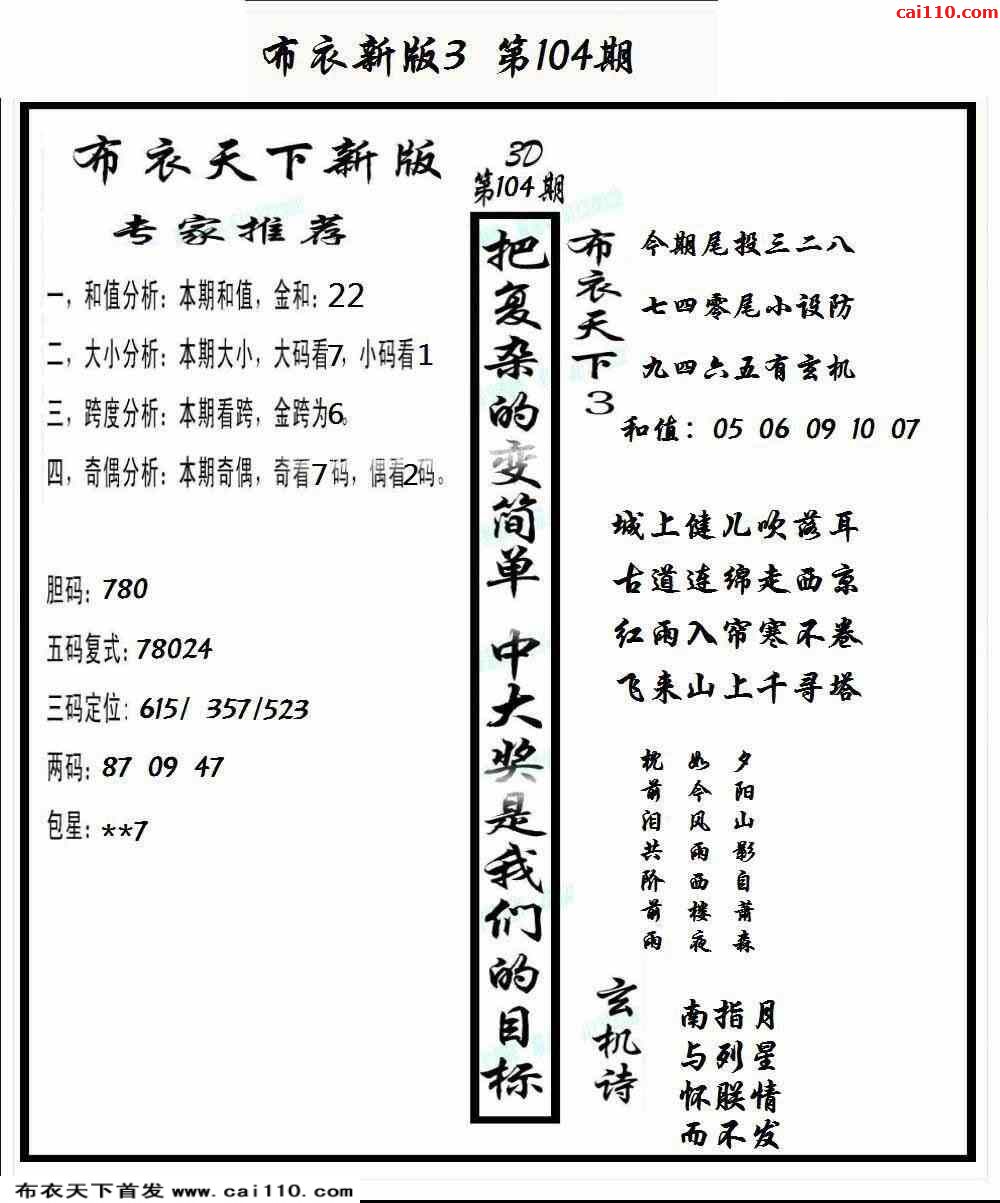 cai110.com
布衣新版3 第104期
布衣天下新版
专家推荐
一，和值分析：本期和值，金和：22
二，大小分析：本期大小，大码看7，小码看1
三，跨度分析：本期看跨，金跨为6。
四，奇偶分析：本期奇偶，奇看7码，偶看2码。
胆码：780
五码复式：78024
三码定位：615/ 357/523
两码：87 09 47
包星：**7
3D
第104期
把复杂的变简单 中大奖是我们的目标
布衣天下3
今期尾投三二八
七四零尾小设防
九四六五有玄机
和值：05 06 09 10 07
城上健儿吹落耳
古道连绵走西京
红雨入帘寒不卷
飞来山上千寻塔
夕阳山影自萧森
如今风雨西楼夜
枕前泪共阶前雨
玄机诗
南指月
与列星
怀朕情
而不发
布衣天下首发 www.cai110.com